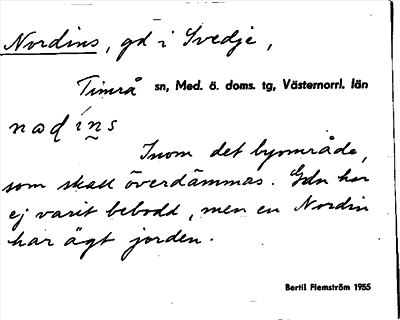 Nordins, gd i Svedje,
Timrå sn, Med. ö. doms. tg, Västernorrl. län
nɷḍíns
Inom det byområde,
som skall överdämmas. Gdn har
ej varit bebodd, men en Nordin
har ägt jorden.
Bertil Flemström 1955